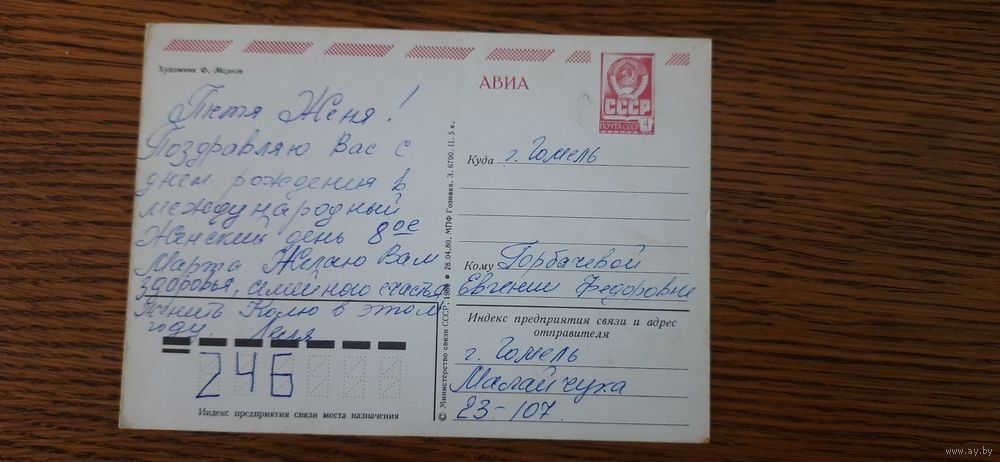 Художник Ф. Марков
Тетя Женя!
Поздравляю Вас с
днем рождения в
международный
Женский день 8ое
Марта Желаю Вам
здоровья, семейного счастья
Женить Колю в этом
году. Леля
246
Индекс предприятия связи места назначения
© Министерство связи СССР, 1980 • 28.04.80. МПФ Гознака. З. 6790. Ц. 5 к.
АВИА
СССР
ПОЧТА СССР
4
Куда г. Гомель
Кому Горбачевой
Евгении Федоровне
Индекс предприятия связи и адрес
отправителя
г. Гомель
Малайчука
23-107.
www.ay.by